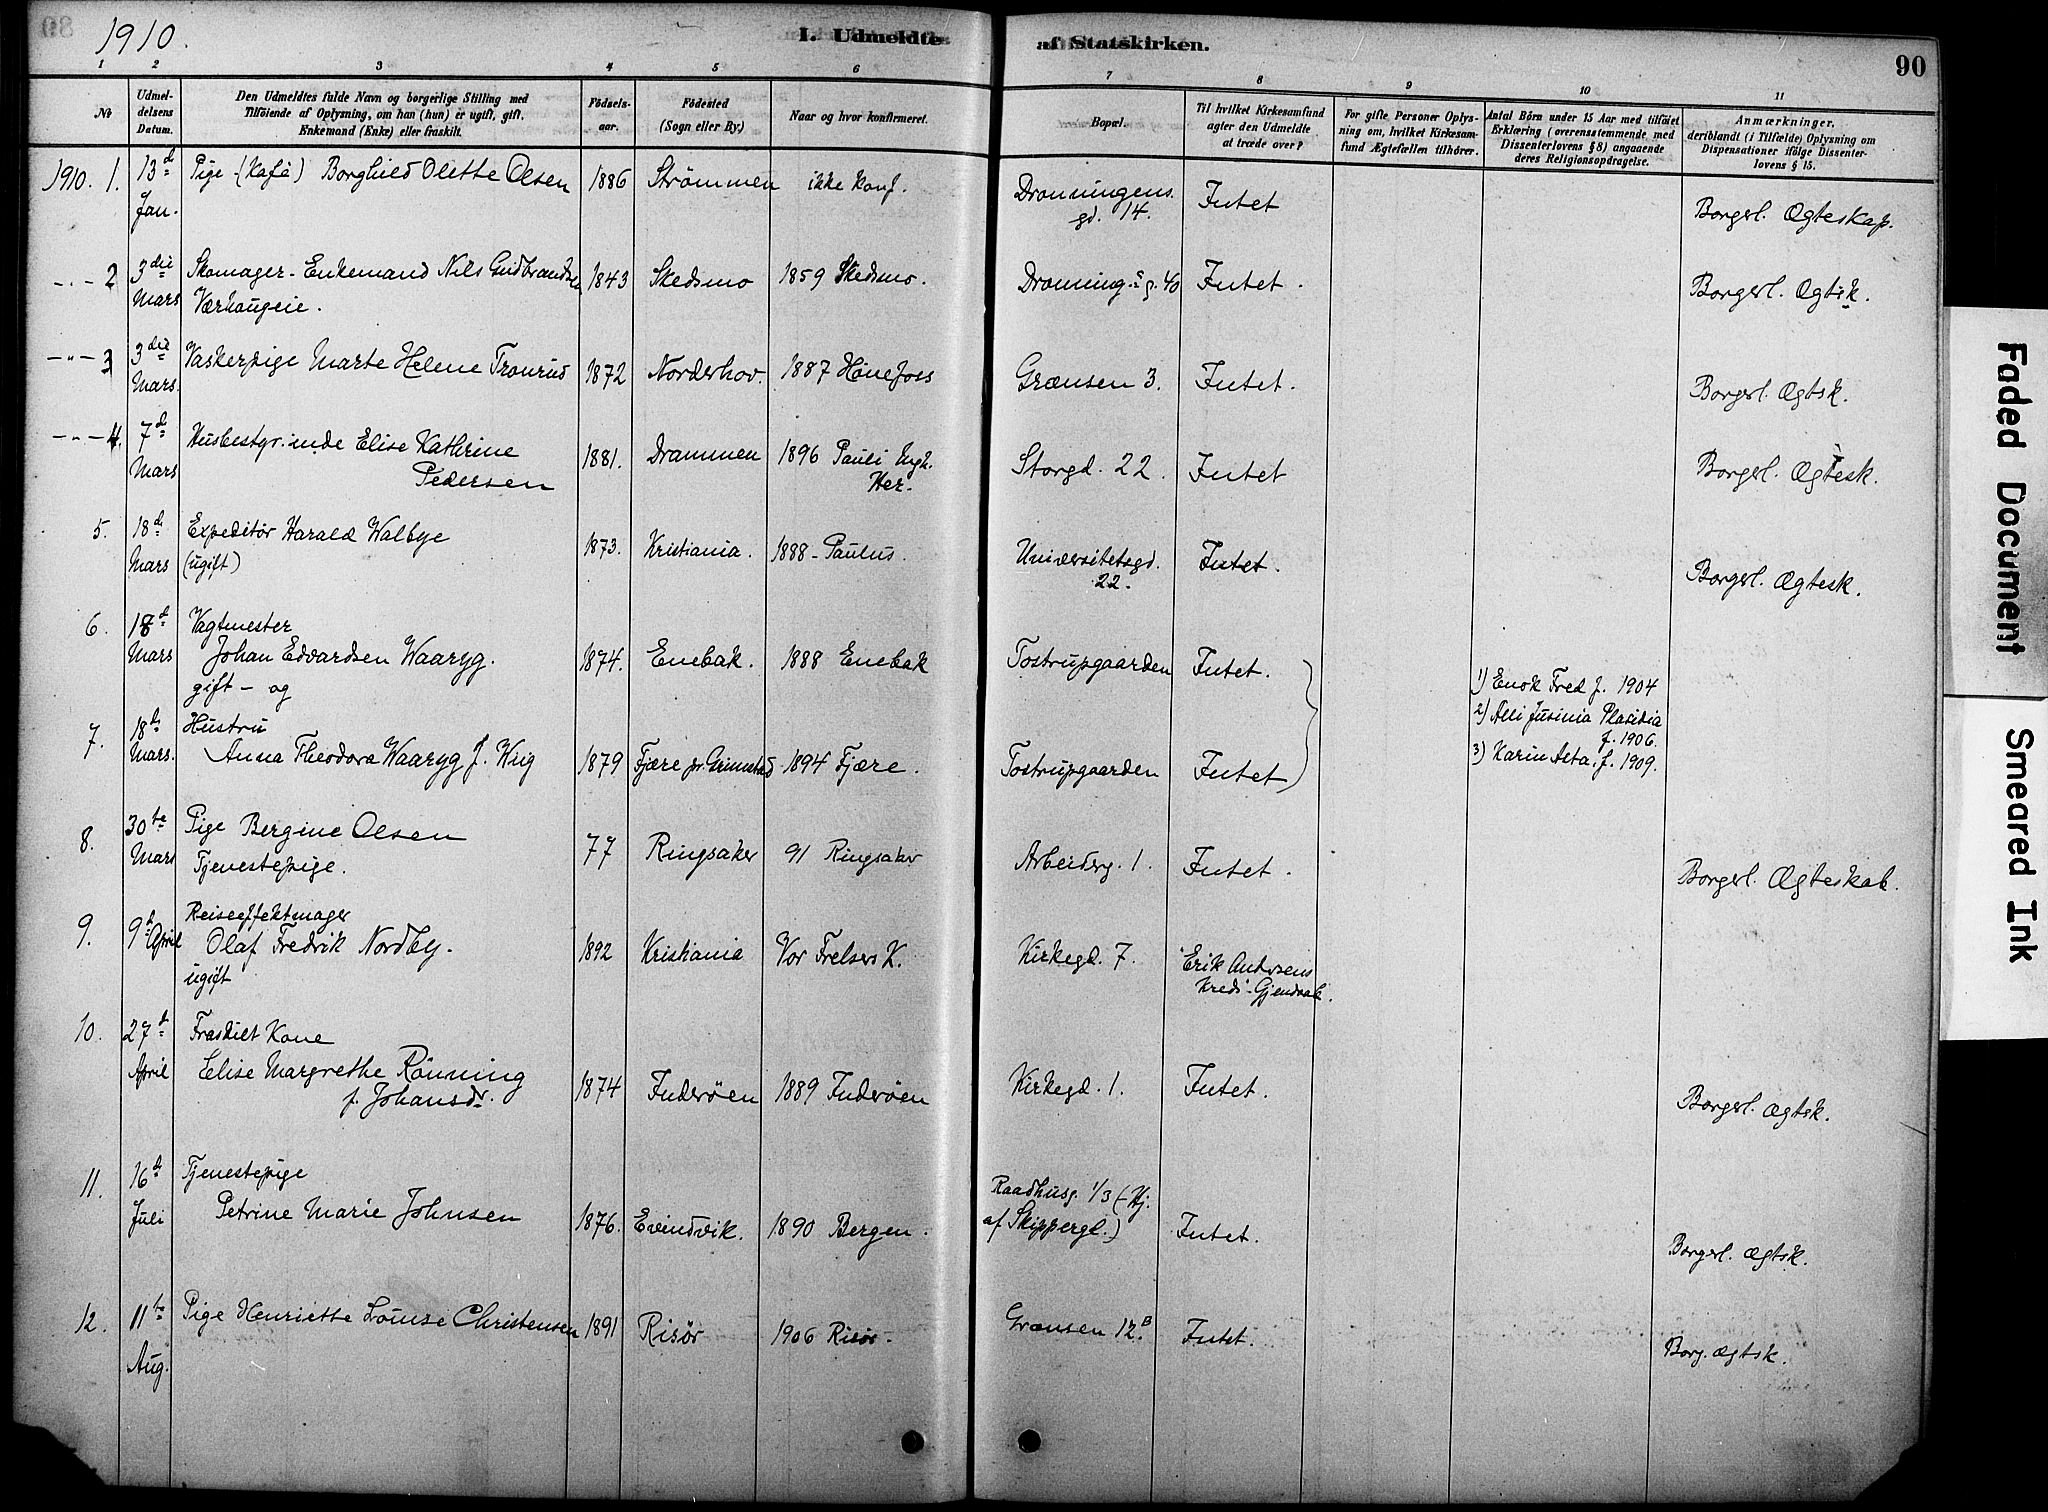 1910.
I. Udmeldte af Statskirken.
90
1 2 3 4 5 6 7 8 9 10 11
No
Udmel-
delsens
Datum.
Den Udmeldtes fulde Navn og borgerlige Stilling med
Tilföiende af Oplysning, om han (hun) er ugift, gift,
Enkemand (Enke) eller fraskilt.
Födsels-
aar.
Födested
(Sogn eller By.)
Naar og hvor konfirmeret.
Bopæl.
Til hvilket Kirkesamfund
agter den Udmeldte
at træde over?
For gifte Personer Oplys-
ning om, hvilket Kirkesam-
fund Ægtefællen tilhörer.
Antal Börn under 15 Aar med tilföiet
Erklæring (overensstemmende med
Dissenterlovens § 8) angaaende
deres Religionsopdragelse.
Anmærkninger,
deriblandt (i Tilfælde) Oplysning om
Dispensationer ifölge Dissenter-
lovens § 15.
1910. 1. 13d Jan. Pige (Kafé) Borghild Olette Olsen 1886 Strömmen ikke konf. Dronningens gd. 14. Intet Borgerl. Ægteskap.
-"- 2 3die Mars Skomager - Enkemand Nils Gudbrandsen Værhaugeie. 1843 Skedsmo 1859 Skedsmo. Dronning.s g. 40 Intet. Borgerl. Ægtsk.
-"- 3 3die Mars. Vaskerpige Marte Helene Tronrud 1872 Norderhov. 1887 Hönefoss Grænsen 3. Intet. Borgerl. Ægtsk.
-"- 4. 7d Mars Husbestyrinde Elise Kathrine Pedersen 1881. Drammen 1896 Pauli Mgh. Her. Storgd. 22. Intet Borgerl. Ægtesk.
5. 18d Mars Expeditør Harald Walbye (ugift) 1873. Kristiania. 1888 - Paulus Universitetsgd. 22. Intet. Borgerl. Ægtesk.
6. 18d Mars Vagtmester Johan Edvardsen Waaryg. gift - og 1874. Enebak. 1888 Enebak Tostrupgaarden Intet. 1) Enok Fred f. 1904
2) Alli Jusinia Plasidia f. 1906.
3) Karin Asta. f. 1909.
7. 18d Mars. Hustru Anna Theodora Waaryg f. Wiig 1879 Fjære pr. Grimstad 1894 Fjære. Tostrupgaarden Intet
8. 30te Mars Pige Bergine Olsen Tjenestepige. 77 Ringsaker 91 Ringsaker Arbeiderg. 1. Intet. Borgerl. Ægteskab.
9. 9d April Reiseeffektmager Olaf Fredrik Nordby. ugift 1892 Kristiania Vor Frelsers K. Kirkegd. 7. "Erik Andersens Kreds" Gjendøab.
10. 27d April Fraskilt Kone Elise Margrethe Rönning f. Johansdr. 1874 Inderöen 1889 Inderöen Kirkegd. 1. Intet. Borgerl. Ægtsk.
11. 16d Juli Tjenestepige Petrine Marie Johnsen 1876. Evindvik. 1890 Bergen. Raadhusg. 1/3 (Hj. af Skippergd.) Intet. Borgerl. Ægtsk.
12. 11te Aug. Pige Henriette Louise Christensen 1891 Risör 1906 Risör. Grænsen 12.B Intet. Borg. Ægtsk.
Faded Document
Smeared Ink